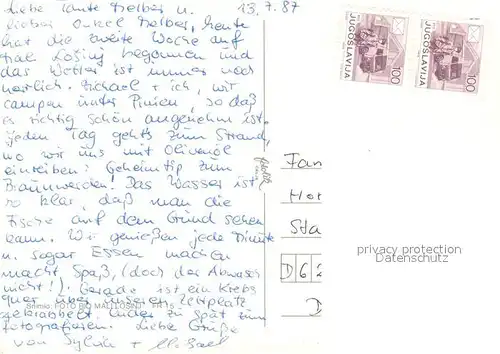 Liebe Tante Helber u. 13.7.87
lieber Onkel Helber, heute
hat die zweite Woche auf
Mali Lošinj begonnen und
das Wetter ist immer noch
herrlich. Michael + ich, wir
campen unter Pinien, so daß
es richtig schön angenehm ist.
Jeden Tag gehts zum Strand,
wo wir uns mit Olivenöl
einreiben: Geheimtip zum
Braunwerden! Das Wasser ist
so klar, daß man die
Fische auf dem Grund sehen
kann. Wir genießen jede Minute
u. sogar Essen machen
macht Spaß, (doch der Abwasch
nicht!). Gerade ist ein Krebs
quer über unseren Zeltplatz
gekrabbelt. Leider zu spät zum
fotografieren. Liebe Grüße
von Sylvia + Michael
Snimio: FOTO BIO MALI LOŠINJ
JUGOSLAVIJA 100
JUGOSLAVIJA 100
Fam
Ho
Sta
D 6 2
D
privacy protection
Datenschutz